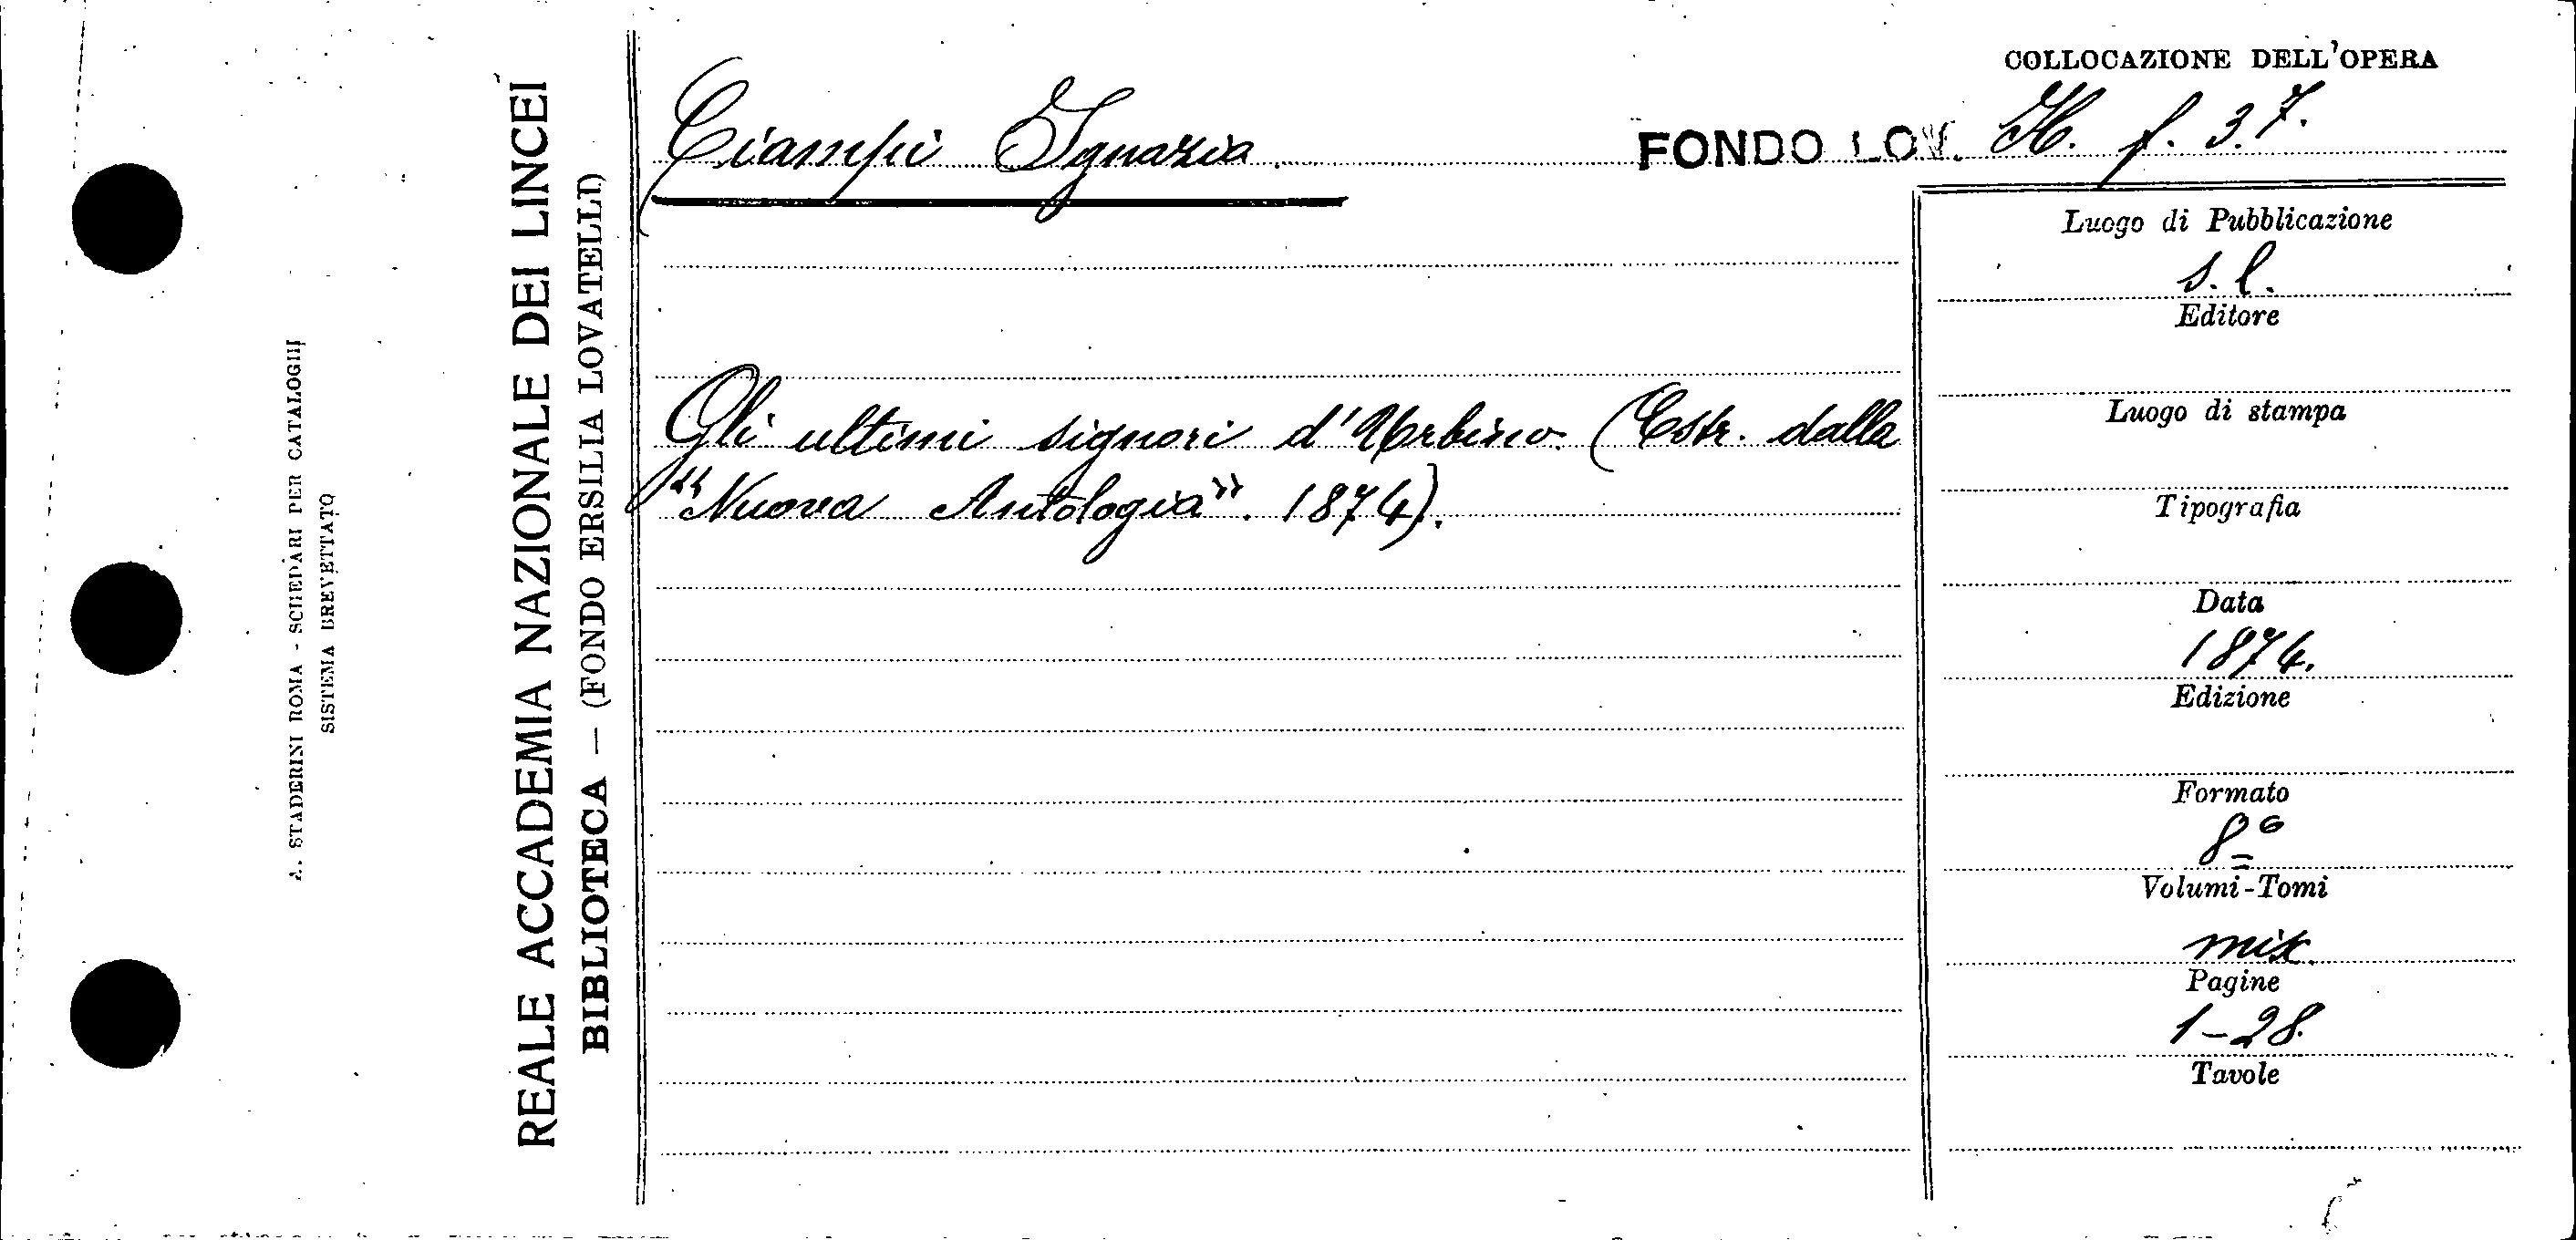 A. STADERINI ROMA - SCHEDARI PER CATALOGHI
SISTEMA BREVETTATO
REALE ACCADEMIA NAZIONALE DEI LINCEI
BIBLIOTECA — (FONDO ERSILIA LOVATELLI)
Ciampi Ignazio.
Gli ultimi signori d'Urbino. (Estr. dalla
"Nuova Antologia". 1874).
COLLOCAZIONE DELL'OPERA
FONDO LOV. H. f. 3.7.
Luogo di Pubblicazione
s. l.
Editore
Luogo di stampa
Tipografia
Data
1874.
Edizione
Formato
8º
Volumi-Tomi
Pagine
1-28.
Tavole